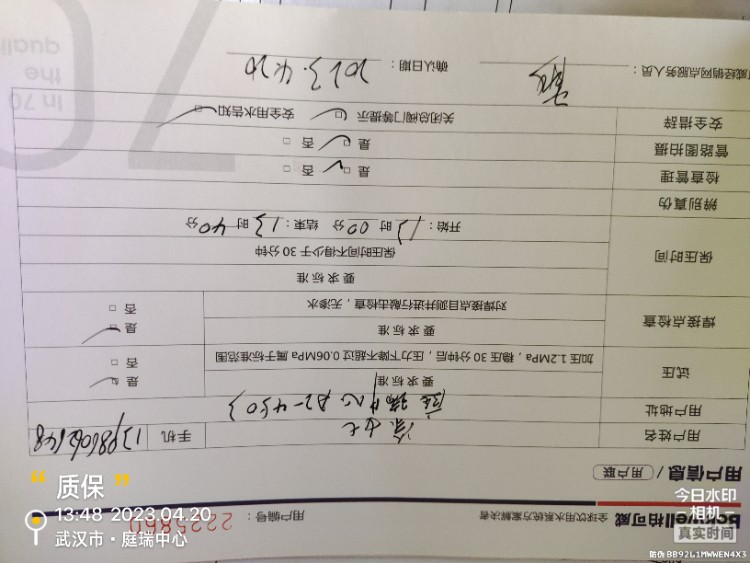 bckwell柏可威 全球饮用水系统方案解决者 用户编号： 2225860
用户信息 / 用户联
用户姓名 手机
用户地址 A2-4503
试压 要求标准 是 否
加压1.2MPa，稳压30分钟后，压力下降不超过0.06MPa属于标准范围
焊接点检查 要求标准 是 否
对焊接点目测并进行敲击检查，无渗水
保压时间 要求标准
保压时间不得少于30分钟
开始：13时00分 结束：13时40分
辨别真伪
检查管理 是 否
管路图拍摄 是 否
安全措辞 关闭总阀门等提示 安全用水告知
威经销网点服务人员： 确认日期：2023.4.20
In 70
the
quali
70
“质保”
13:48 2023.04.20
武汉市·庭瑞中心
今日水印
相机
真实时间
防伪BB92L1MWWEN4X3